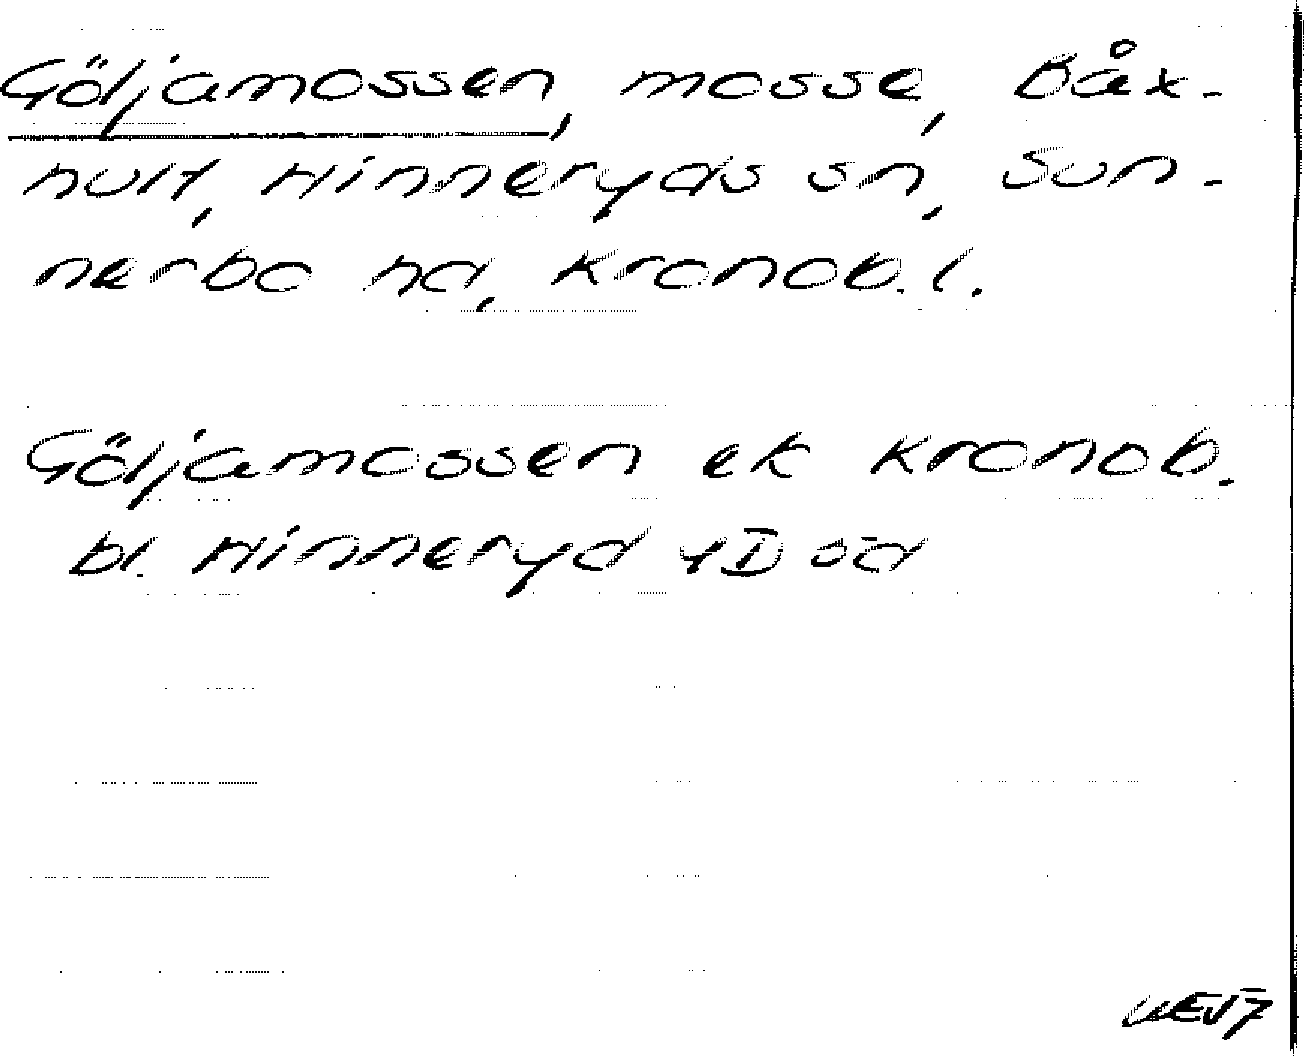 Göljamossen, mosse, Båx-
hult, Hinneryds sn, Sun-
nerbo hd, Kronob. l.
Göljamossen ek Kronob.
bl. Hinneryd 4D sd